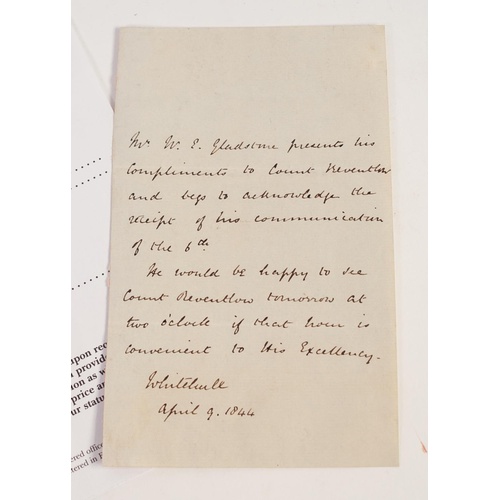 Mr W. E. Gladstone presents his
compliments to Count Reventlow
and begs to acknowledge the
receipt of his communication
of the 6th.
He would be happy to see
Count Reventlow tomorrow at
two o'clock if that hour is
convenient to His Excellency.
Whitehall
April 9. 1844
upon rec
provide
on as w
price an
ur statu
ered office
tered in E